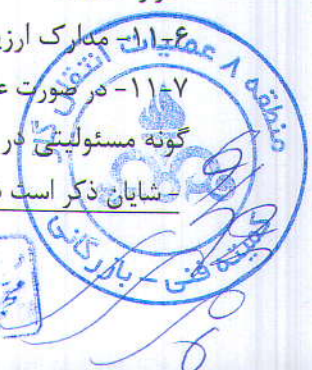 ۱۱-۶- مدارک ارزی
۱۱-۷- در صورت ع
گونه مسئولیتی در
- شایان ذکر است
منطقه ۸ عملیات انتقال گاز
کمیته فنی - بازرگانی